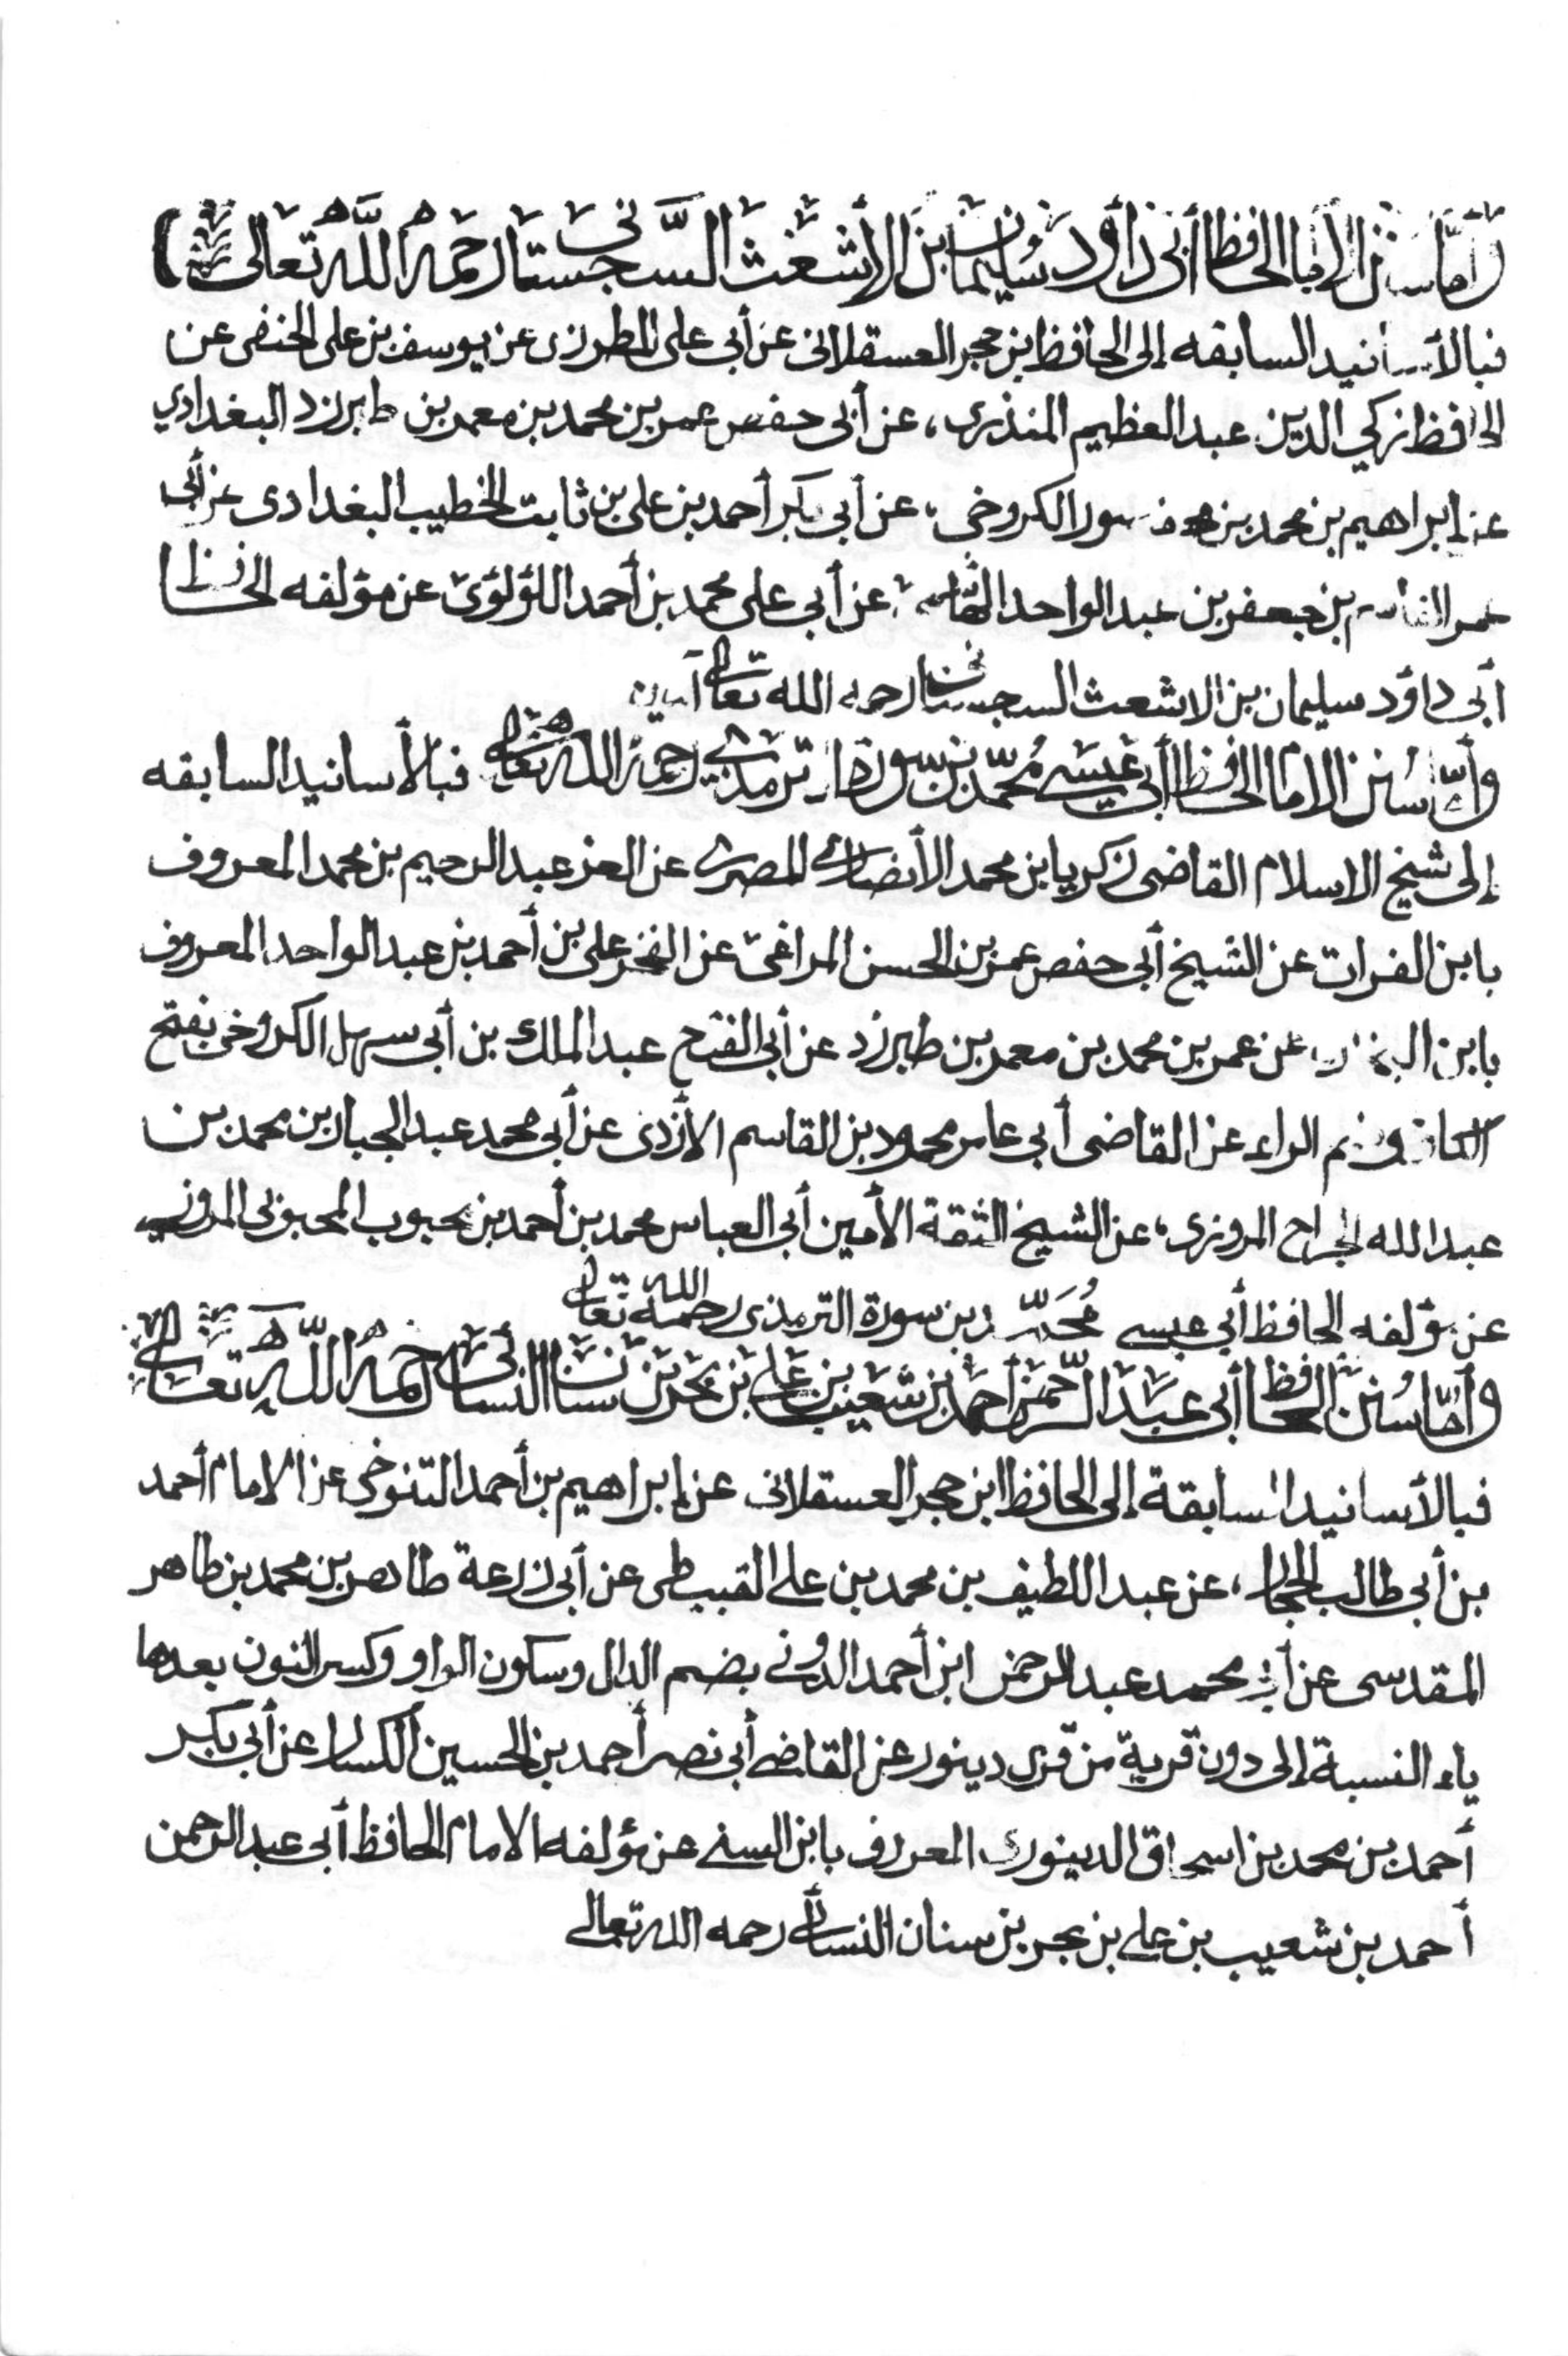 وأما سنن الإمام الحافظ أبي داود سليمان بن الأشعث السجستاني رحمه الله تعالى
فبالأسانيد السابقه إلى الحافظ ابن حجر العسقلاني عن أبي على المطرزى عن يوسف بن على الحنفى عن
الحافظ زكي الدين عبد العظيم المنذرى، عن أبى حفص عمر بن محمد بن معمر بن طبرزد البغدادي
عن إبراهيم بن محمد بن الكروخي، عن أبي بكر أحمد بن على بن ثابت الخطيب البغدادى عن أبي
عمر القاسم بن جعفر بن عبد الواحد عن أبي على محمد بن أحمد اللؤلؤى عن مؤلفه الحافظ
أبي داؤد سليمان بن الاشعث السجستانى رحمه الله تعالى آمين
وأما سُنن الامام الحافظ أبي عيسى مُحمّد بن سورة الترمذي رحمه الله تعالى فبالأسانيد السابقه
إلى شيخ الاسلام القاضى زكريا بن محمد الأنصارى المصرى عن العز عبد الرحيم بن محمد المعروف
بابن الفرات عن الشيخ أبى حفص عمر بن الحسن المراغى عن الفخر على بن أحمد بن عبد الواحد المعروف
بابن عن عمر بن محمد بن معمر بن طبرزد عن أبى الفتح عبد الملك بن أبي سهل الكروخى بفتح
الكاف وضم الراء عن القاضى أبي عامر محمود بن القاسم الأزدى عن أبي محمد عبد الجبار بن محمد بن
عبد الله الجراح المروزى، عن الشيخ الثقة الأمين أبى العباس محمد بن أحمد بن محبوب المحبوبى المروزى
عن مؤلفه الحافظ أبي عيسى مُحَمّد بن سورة الترمذى رحمة الله تعالى
وأمّا سُنن الحافظ أبي عبد الرّحمن أحمد بن شعيب بن علي بن بحر بن سنان النسائى رحمه الله تعالى
فبالأسانيد السابقة إلى الحافظ ابن حجر العسقلانى عن إبراهيم بن أحمد التنوخى عن الامام أحمد
بن أبى طالب الحجار، عن عبد اللطيف بن محمد بن على القبيطى عن أبى زرعة طاهر بن محمد بن طاهر
المقدسى عن أبى محمد عبد الرحمن ابن أحمد الدونى بضم الدال وسكون الواو وكسر النون بعدها
ياء النسبة إلى دون قرية من قرى دينور عن القاضى أبي نصر أحمد بن الحسين الكسار عن أبي بكر
أحمد بن محمد بن اسحاق الدينورى المعروف بابن السنى عن مؤلفه الامام الحافظ أبي عبد الرحمن
أحمد بن شعيب بن على بن بحر بن سنان النسائى رحمه الله تعالى